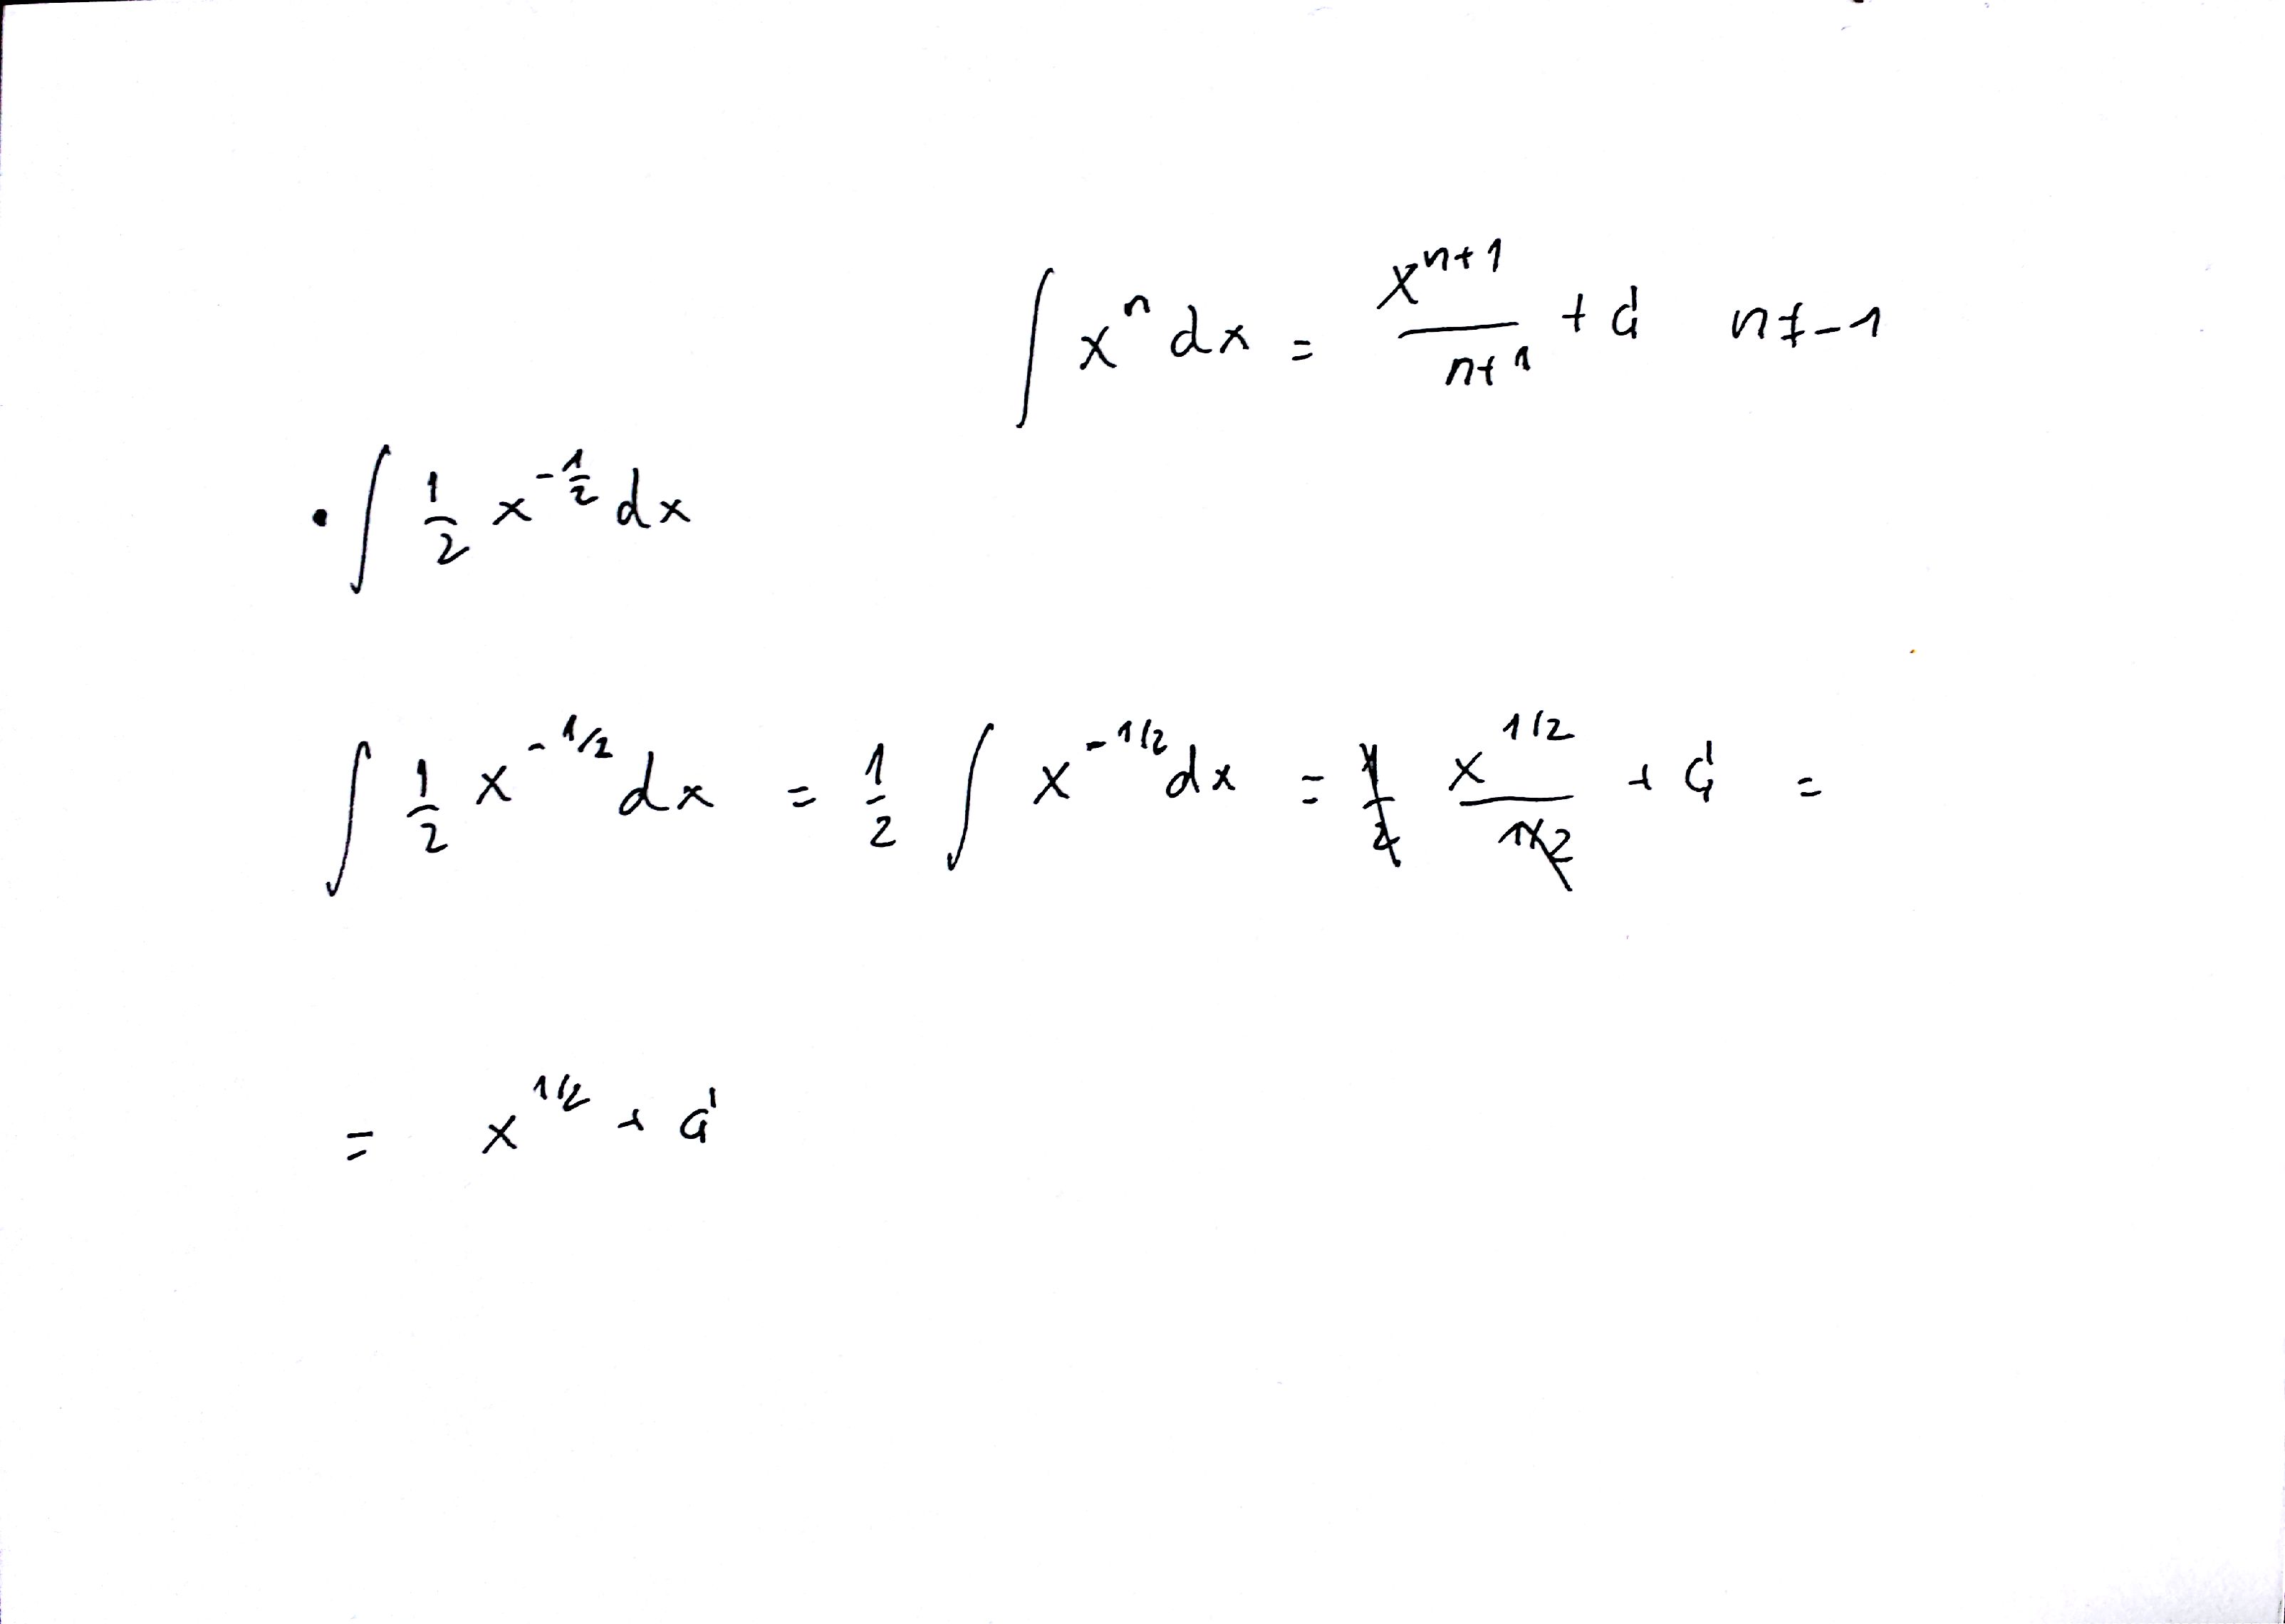 ∫ xⁿ dx = xⁿ⁺¹/(n+1) + C n ≠ -1
• ∫ 1/2 x^(-1/2) dx
∫ 1/2 x^(-1/2) dx = 1/2 ∫ x^(-1/2) dx = 1/2 x^(1/2)/(1/2) + C =
= x^(1/2) + C